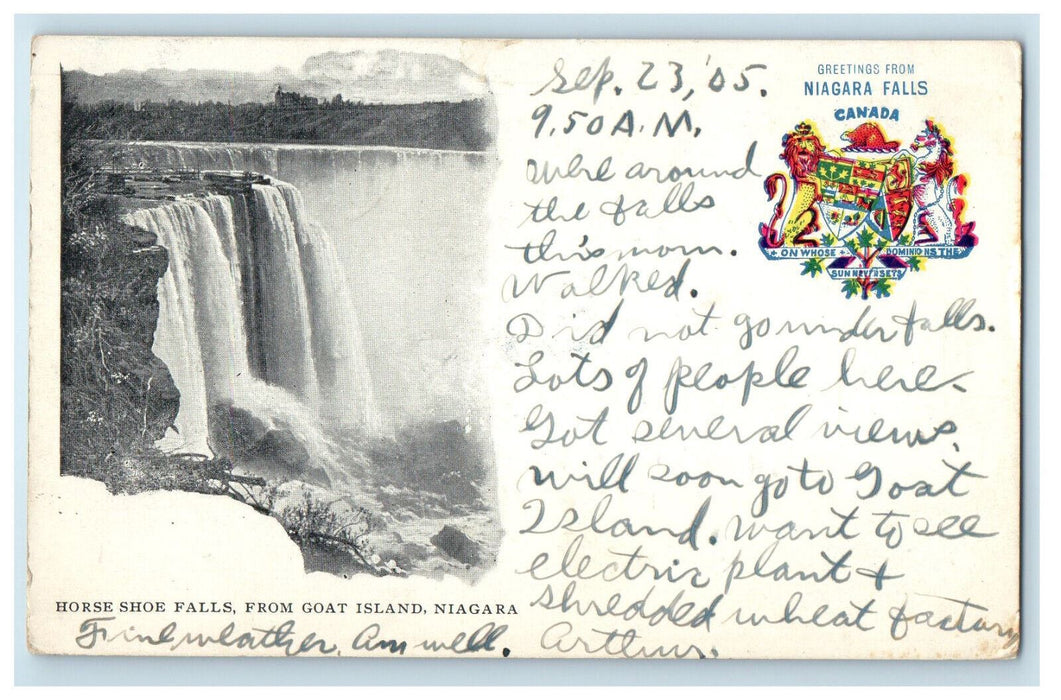 GREETINGS FROM
NIAGARA FALLS
CANADA
ON WHOSE DOMINIONS THE
SUN NEVER SETS
Sep. 23, '05.
9.50 A.M.
Were around
the falls
this morn.
Walked.
Did not go under falls.
Lots of people here.
Got several views.
Will soon go to Goat
Island. Want to see
electric plant +
shredded wheat factory
HORSE SHOE FALLS, FROM GOAT ISLAND, NIAGARA
Fine weather. Am well. Arthur.